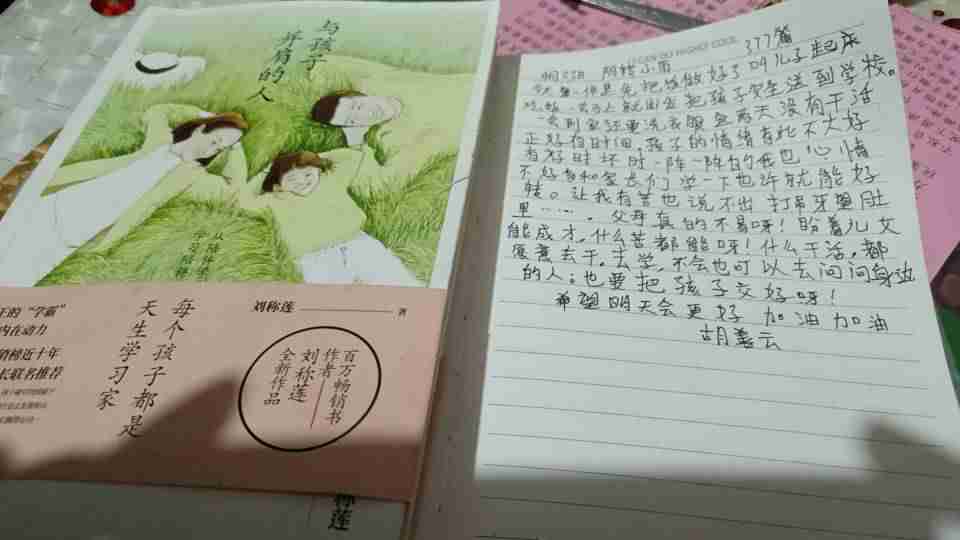 与孩子
并肩的人
从陪伴学习
刘称莲 著
每个孩子都是
天生学习家
百万畅销书
作者
刘称莲
全新作品
的“学霸”
内在动力
销称近十年
长联名推荐
称莲
377篇
阴转小雨
把饭做好了叫儿子起床
把孩子学生送到学校。
一会到家还要洗衣服 两天没有干活
正好有时间,孩子的情绪有些不大好
有好时坏时一阵一阵的我也心情
不好多和家长们学一下也许就能好
转。让我有苦也说不出打吊牙塑肚
里……。父母真的不易呀!盼着儿女
能成才,什么苦都能呀!什么干活,都
愿意去干,去学,不会也可以去问问身边
的人;也要把孩子交好呀!
希望明天会更好 加油加油
胡善云